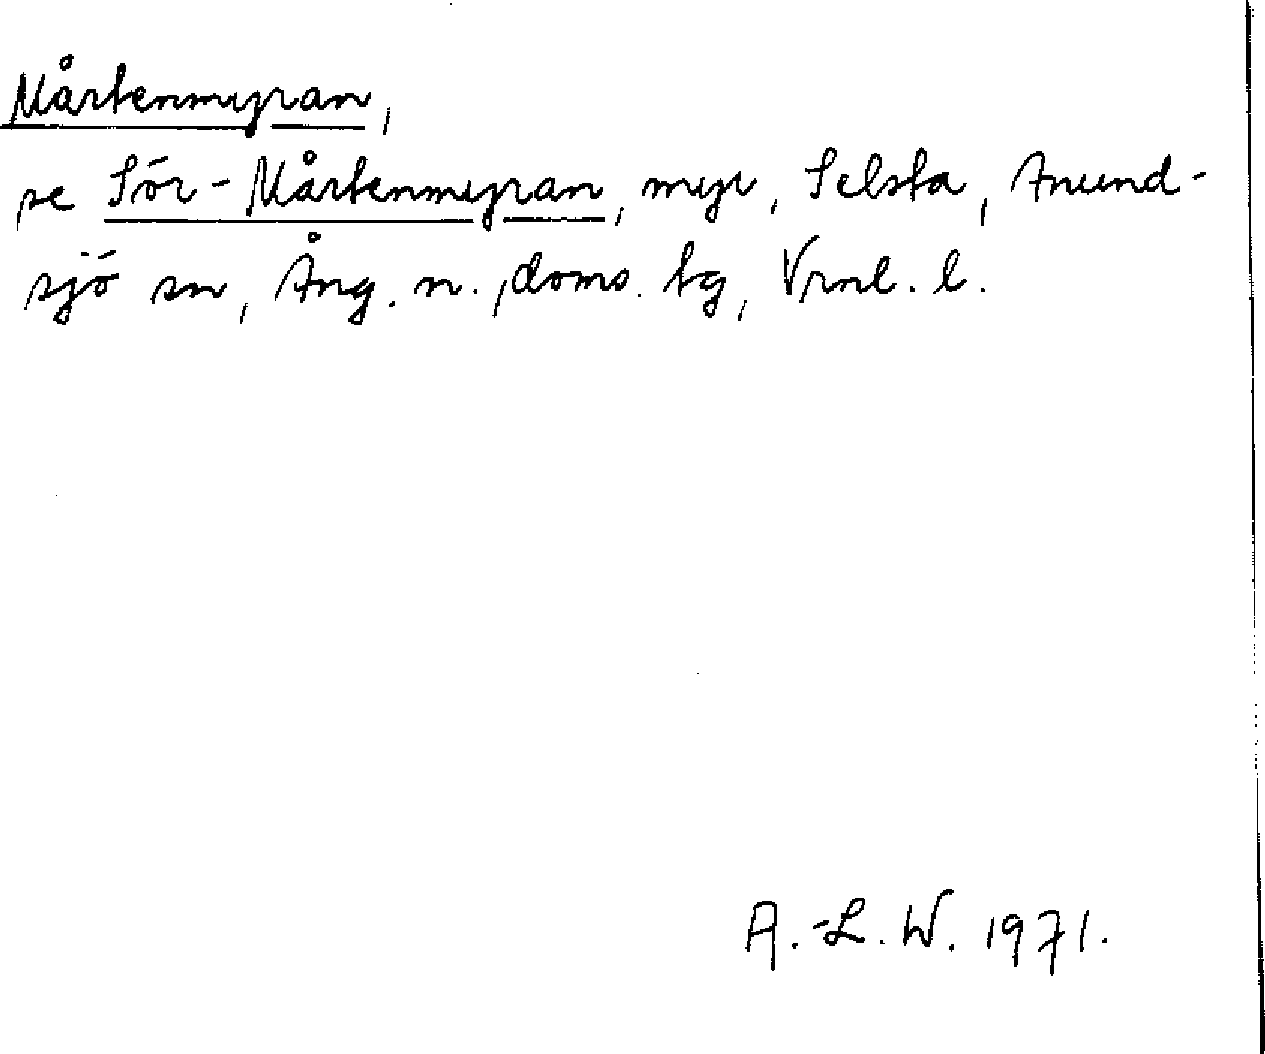 Mårtenmyran,
se Sör-Mårtenmyran, myr, Selsta, Anund-
sjö sn, Ång. n., doms. tg, Vrnl. l.
A.-L. W. 1971.